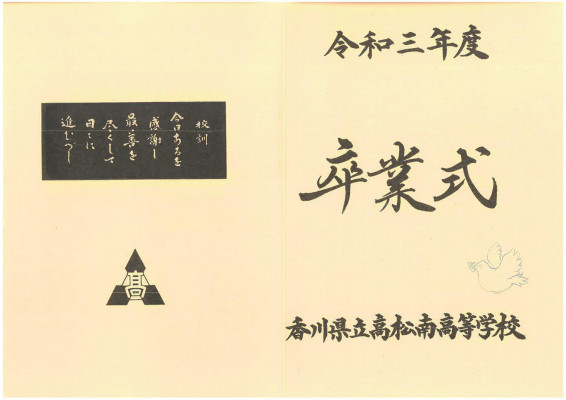 令和三年度
卒業式
香川県立高松南高等学校
校訓
今日あるを
感謝し
最善を
尽くして
日々に
進むべし
高